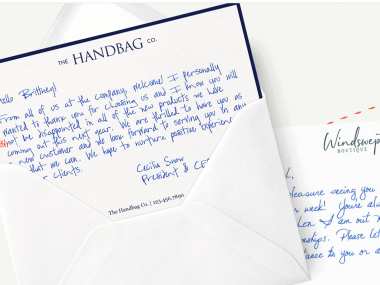 THE HANDBAG CO.
Hello Brittney!
From all of us at the company, welcome! I personally
wanted to thank you for choosing us and I know you will
not be disappointed in all of the new products we have
coming out this next year. We are thrilled to have you as
new customer and we look forward to serving you in any
that we can. We hope to nurture positive experience
r clients.
Cecilia Snow
President & CE
The Handbag Co. |
Windswep
BOUTIQUE
leasure seeing you
week! You're alwa
en I am out
nships. Please let
ance to you or a